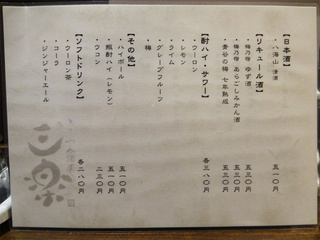 【日本酒】
・八海山 清酒 五一〇円
【リキュール酒】
・梅乃宿 ゆず酒 五三〇円
・梅乃宿 あらごしみかん酒 五三〇円
・青谷の梅 七年熟成 五三〇円
【酎ハイ・サワー】
・ウーロン
・レモン
・ライム
・グレープフルーツ
・梅
各三八〇円
【その他】
・ハイボール 五一〇円
・瓶酎ハイ（レモン） 五一〇円
・ウコン 二五〇円
【ソフトドリンク】
・ウーロン茶
・コーラ
・ジンジャーエール
各二八〇円